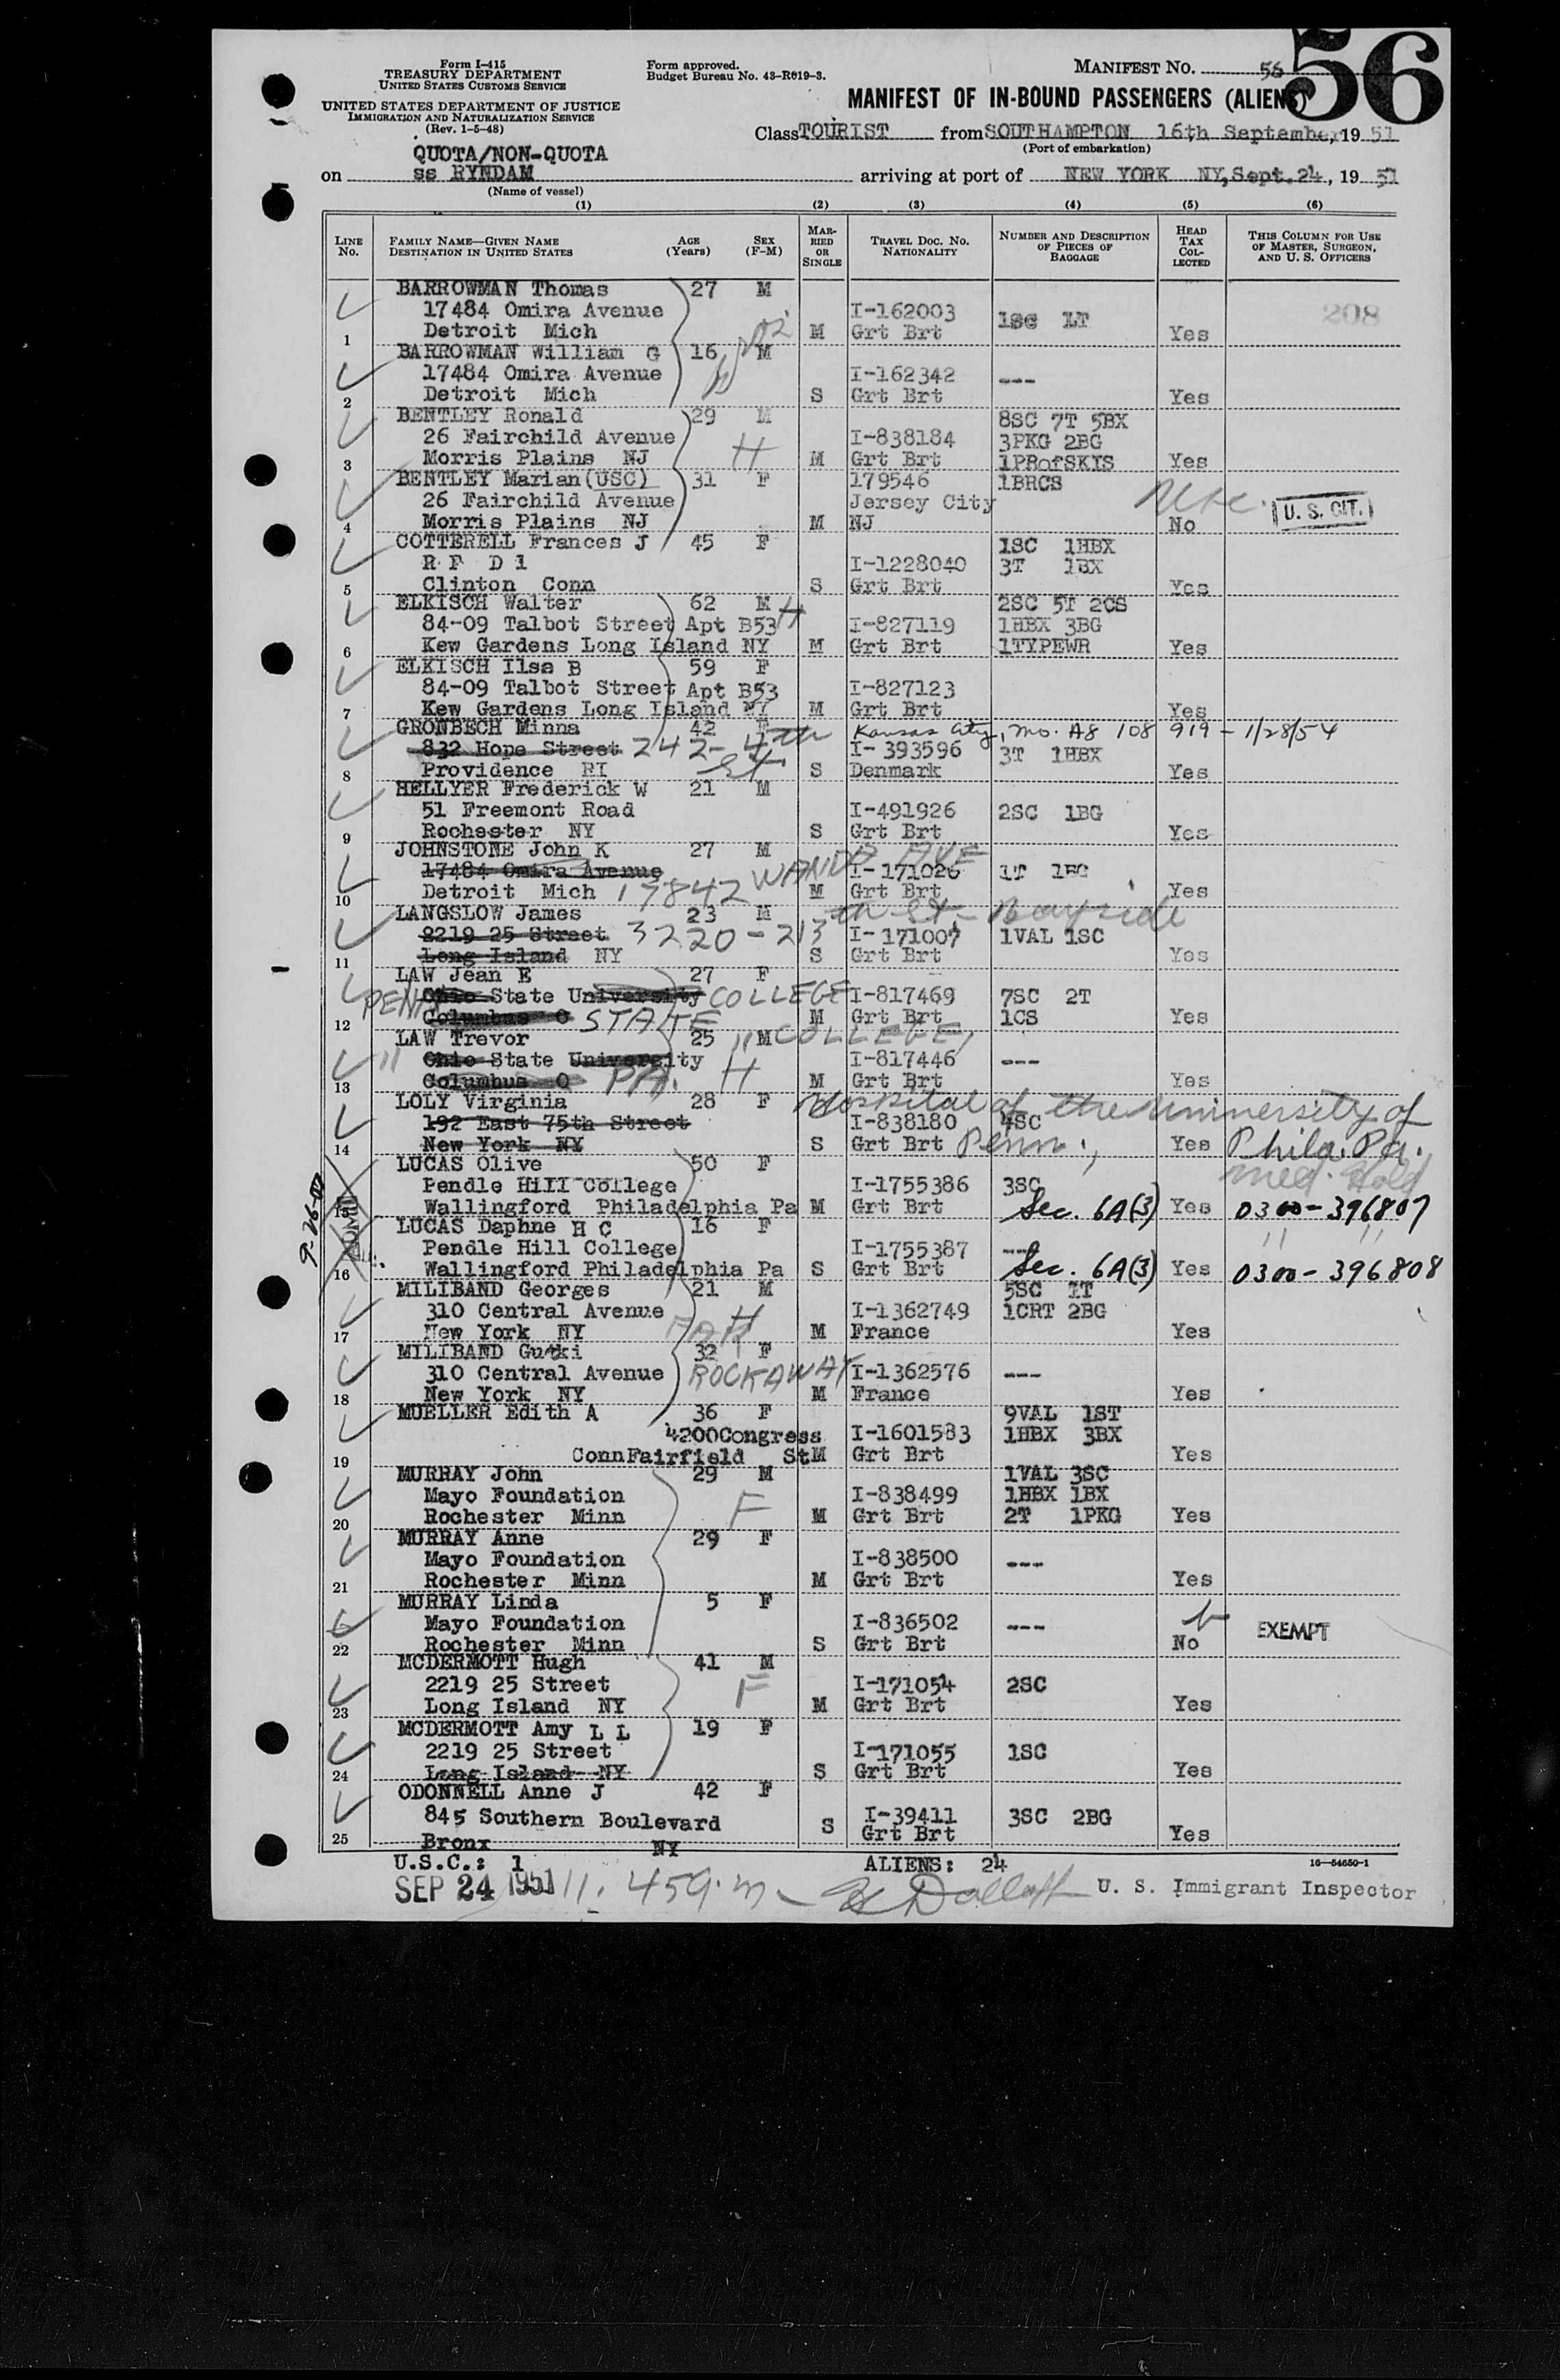 56
Form I-415
TREASURY DEPARTMENT
UNITED STATES CUSTOMS SERVICE
UNITED STATES DEPARTMENT OF JUSTICE
IMMIGRATION AND NATURALIZATION SERVICE
(Rev. 1-5-48)
Form approved.
Budget Bureau No. 43-R019-3.
MANIFEST NO. 56
MANIFEST OF IN-BOUND PASSENGERS (ALIENS)
Class TOURIST from SOUTHAMPTON 16th September, 19 51
(Port of embarkation)
QUOTA/NON-QUOTA
on ss RYNDAM arriving at port of NEW YORK NY, Sept. 24, 19 51
(Name of vessel)
(1) (2) (3) (4) (5) (6)
LINE No. FAMILY NAME—GIVEN NAME DESTINATION IN UNITED STATES AGE (Years) SEX (F-M) MARRIED OR SINGLE TRAVEL DOC. NO. NATIONALITY NUMBER AND DESCRIPTION OF PIECES OF BAGGAGE HEAD TAX COLLECTED THIS COLUMN FOR USE OF MASTER, SURGEON, AND U. S. OFFICERS
BARROWMAN Thomas 27 M
17484 Omira Avenue I-162003 1SC 1T 208
1 Detroit Mich M Grt Brt Yes
BARROWMAN William G 16 M
17484 Omira Avenue I-162342 ---
2 Detroit Mich S Grt Brt Yes
BENTLEY Ronald 29 M 8SC 7T 5BX
26 Fairchild Avenue H I-838184 3PKG 2BG
3 Morris Plains NJ M Grt Brt 1PRofSKIS Yes
BENTLEY Marian (USC) 31 F 179546 1BRCS
26 Fairchild Avenue Jersey City U. S. CIT.
4 Morris Plains NJ M NJ No
COTTERELL Frances J 45 F 1SC 1HBX
R F D 1 I-1228040 3T 1BX
5 Clinton Conn S Grt Brt Yes
ELKISCH Walter 62 M H 2SC 5T 2CS
84-09 Talbot Street Apt B53 I-827119 1HBX 3BG
6 Kew Gardens Long Island NY M Grt Brt 1TYPEWR Yes
ELKISCH Ilse B 59 F
84-09 Talbot Street Apt B53 I-827123
7 Kew Gardens Long Island NY M Grt Brt Yes
GRONBECH Minna 42 F Kansas City, Mo. A8 108 919 - 1/28/54
832 Hope Street 242- 4th St. I-393596 3T 1HBX
8 Providence RI S Denmark Yes
HELLYER Frederick W 21 M
51 Freemont Road I-491926 2SC 1BG
9 Rochester NY S Grt Brt Yes
JOHNSTONE John K 27 M WANDA AVE
17484 Omira Avenue I-171026 1T 1BG
10 Detroit Mich 17842 M Grt Brt Yes
LANGSLOW James 23 M th St. - Bayside
2219 25 Street 3220-213 I-171007 1VAL 1SC
11 Long Island NY S Grt Brt Yes
LAW Jean E 27 F
PENN Ohio State University COLLEGE I-817469 7SC 2T
12 Columbus O STATE M Grt Brt 1CS Yes
LAW Trevor 25 M " COLLEGE,
" Ohio State University I-817446 ---
13 Columbus O PA. H M Grt Brt Yes
LOLY Virginia 28 F Hospital of the University of
192 East 75th Street I-838180 4SC
14 New York NY S Grt Brt Penn., Yes Phila. Pa.
LUCAS Olive 50 F med. Hold
Pendle Hill College I-1755386 3SC
15 Wallingford Philadelphia Pa M Grt Brt Sec. 6A(3) Yes 0300-396807
LUCAS Daphne H C 16 F " "
Pendle Hill College I-1755387 ---
16 Wallingford Philadelphia Pa S Grt Brt Sec. 6A(3) Yes 0300-396808
MILIBAND Georges 21 M 5SC 1T
310 Central Avenue H I-1362749 1CRT 2BG
17 New York NY FAR M France Yes
MILIBAND Gutki 32 F
310 Central Avenue ROCKAWAY I-1362576 ---
18 New York NY M France Yes
MUELLER Edith A 36 F 9VAL 1ST
4200Congress I-1601583 1HBX 3BX
19 ConnFairfield St M Grt Brt Yes
MURRAY John 29 M 1VAL 3SC
Mayo Foundation F I-838499 1HBX 1BX
20 Rochester Minn M Grt Brt 2T 1PKG Yes
MURRAY Anne 29 F
Mayo Foundation I-838500 ---
21 Rochester Minn M Grt Brt Yes
MURRAY Linda 5 F
Mayo Foundation I-836502 --- EXEMPT
22 Rochester Minn S Grt Brt No
MCDERMOTT Hugh 41 M
2219 25 Street F I-171054 2SC
23 Long Island NY M Grt Brt Yes
MCDERMOTT Amy L L 19 F
2219 25 Street I-171055 1SC
24 Long Island NY S Grt Brt Yes
ODONNELL Anne J 42 F
845 Southern Boulevard S I-39411 3SC 2BG
25 Bronx NY Grt Brt Yes
U.S.C.: 1 ALIENS: 24 16—54650-1
SEP 24 1951 11.45 a.m. U. S. Immigrant Inspector